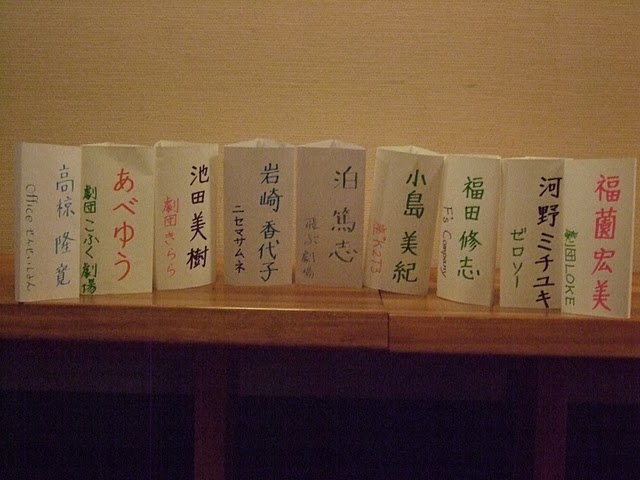 福薗宏美
劇団LOKE
河野ミチユキ
ゼロソー
福田修志
F's Company
小島美紀
泊篤志
岩崎香代子
ニセマサムネ
池田美樹
劇団きらら
あべゆう
劇団こふく劇場
高椋隆寛
Office